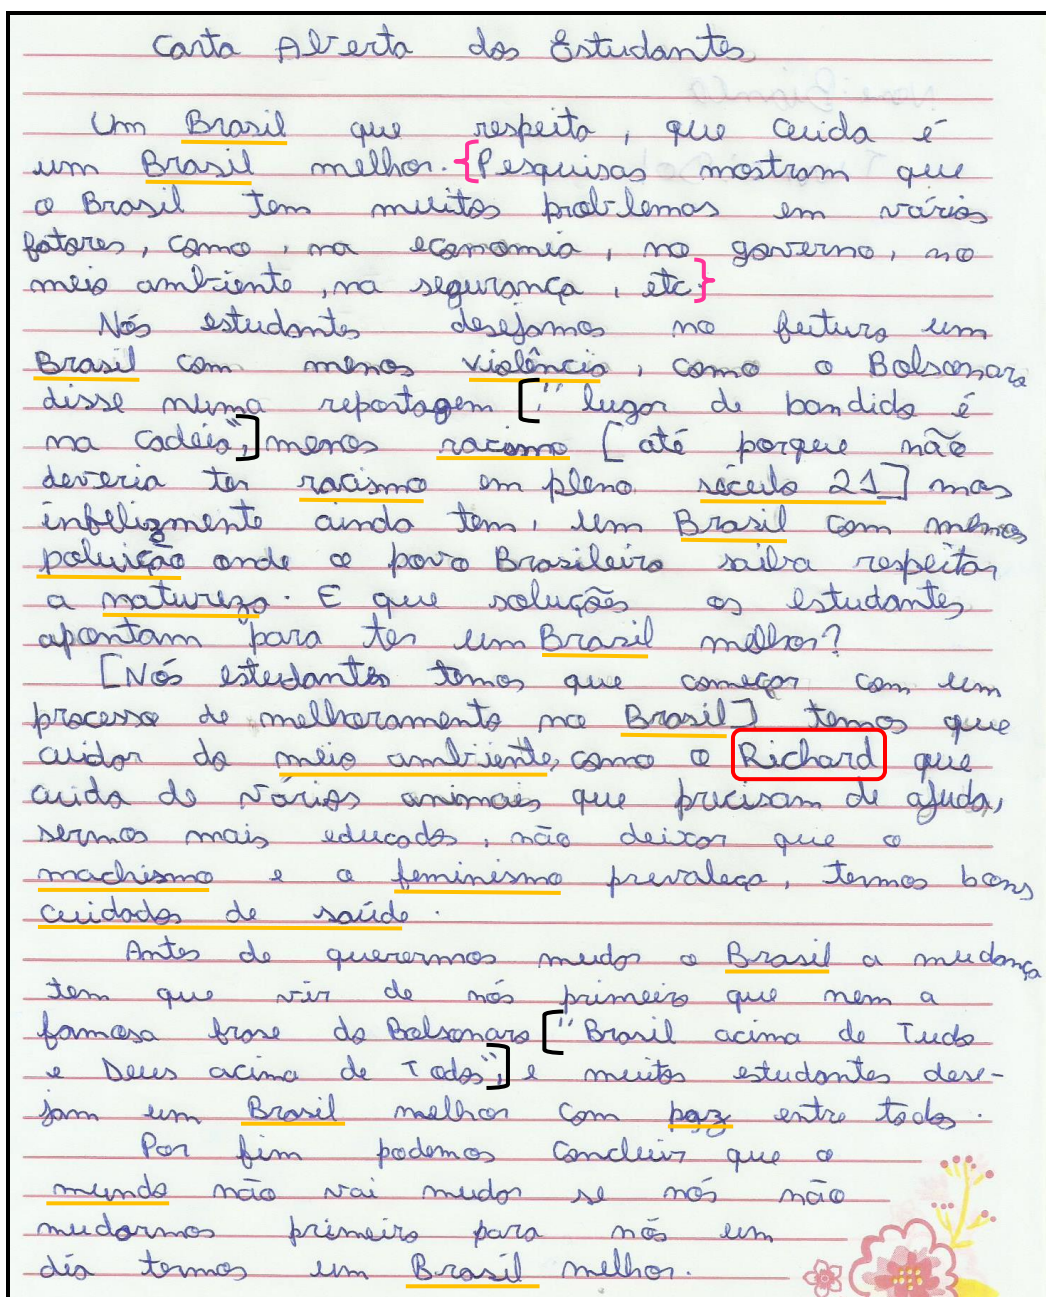 Carta Aberta dos Estudantes
Um Brasil que respeita, que cuida é
um Brasil melhor. {Pesquisas mostram que
o Brasil tem muitos problemas em vários
fatores, como, na economia, no governo, no
meio ambiente, na segurança, etc}
Nós estudantes desejamos no futuro um
Brasil com menos violência, como o Bolsonaro
disse numa reportagem [," lugar de bandido é
na cadeia",] menos racismo [até porque não
deveria ter racismo em pleno século 21] mas
infelizmente ainda tem, um Brasil com menos
poluição onde o povo Brasileiro saiba respeitar
a natureza. E que soluções os estudantes
apontam para ter um Brasil melhor?
[Nós estudantes temos que começar com um
processo de melhoramento no Brasil] temos que
cuidar do meio ambiente, como o Richard que
cuida de vários animais que precisam de ajuda,
sermos mais educados, não deixar que o
machismo e o feminismo prevaleça, termos bons
cuidados de saúde.
Antes de querermos mudar o Brasil a mudança
tem que vir de nós primeiro que nem a
famosa frase do Bolsonaro ["Brasil acima de Tudo
e Deus acima de Todos",] e muitos estudantes dese-
jam um Brasil melhor com paz entre todos.
Por fim podemos concluir que o
mundo não vai mudar se nós não
mudarmos primeiro para nós um
dia termos um Brasil melhor.